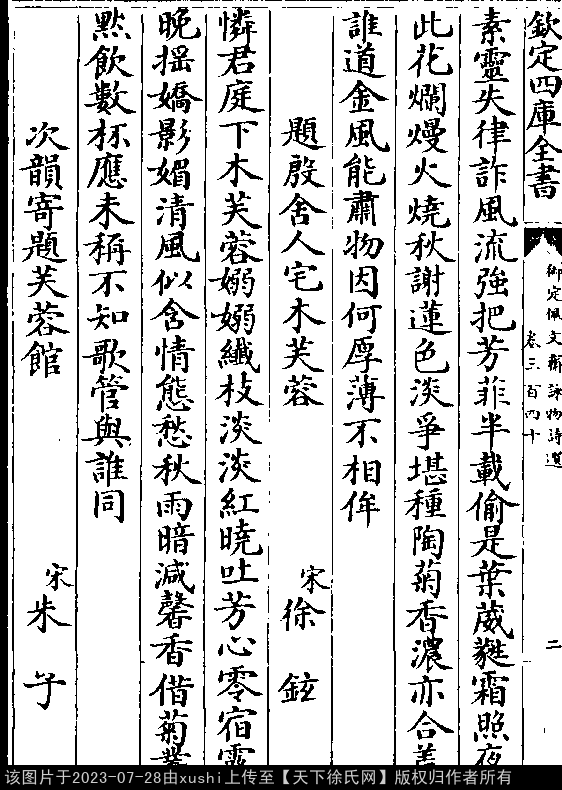 欽定四庫全書
御定佩文齋詠物詩選
卷三百四十
二
素靈失律詐風流強把芳菲半載偷是葉葳蕤霜照夜
此花爛熳火燒秋謝蓮色淡爭堪種陶菊香濃亦合羞
誰道金風能肅物因何厚薄不相侔
題殷舍人宅木芙蓉
宋徐鉉
憐君庭下木芙蓉嫋嫋纖枝淡淡紅曉吐芳心零宿露
晚摇嬌影媚清風似含情態愁秋雨暗減馨香借菊叢
㸃飲數杯應未稱不知歌管與誰同
次韻寄題芙蓉館
宋朱子
该图片于2023-07-28由xushi上传至【天下徐氏网】版权归作者所有